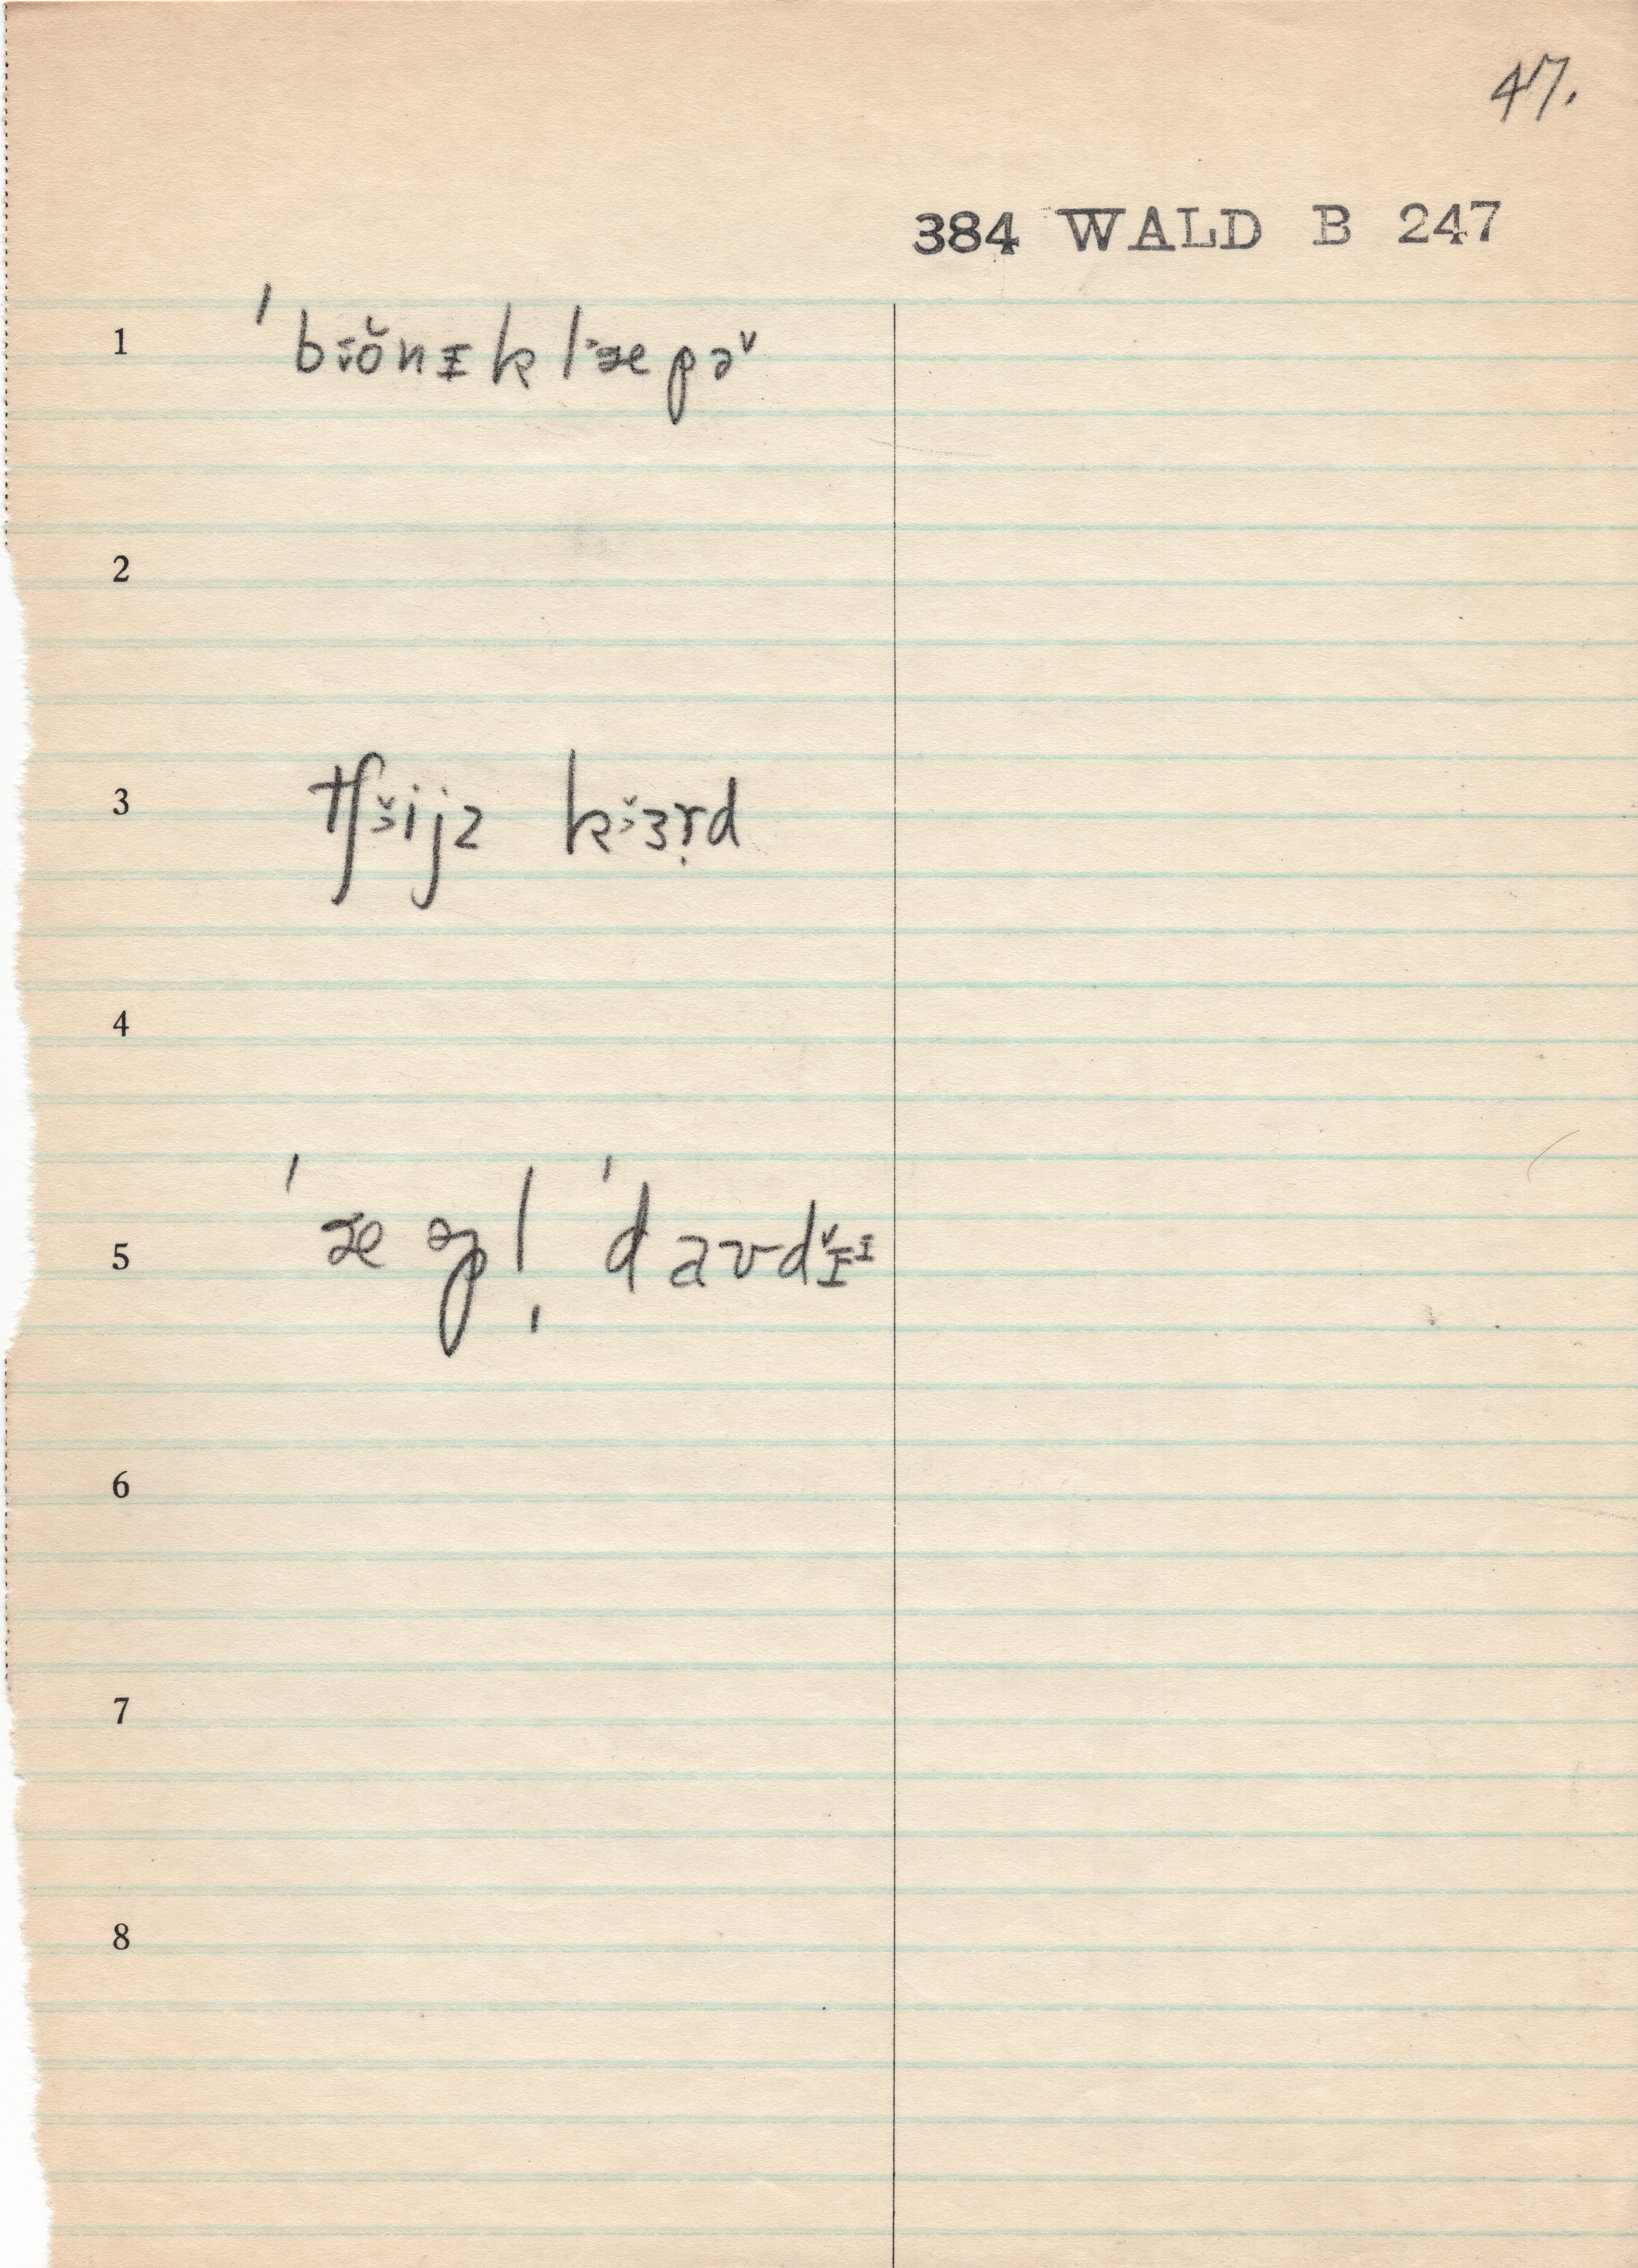 47.
384 WALD B 247
1 ˈbɪ̆ɔ̆nɪklʾæpə˅
2
3 tʃʾijz kʾɜṛd
4
5 ˈæpl̩ ˈdavdɪ̆ᶦ
6
7
8